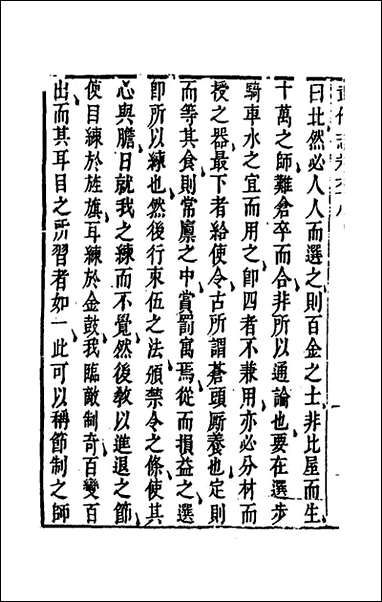 武備志卷六八
曰此然必人人而選之則百金之士非比屋而生
十萬之師難倉卒而合非所以通論也要在選步
騎車水之宜而用之卽四者不兼用亦必分材而
授之器最下者給使令古所謂蒼頭厮養也定則
而等其食則常廪之中賞罰寓焉從而損益之選
卽所以練也然後行束伍之法頒禁令之條使其
心與膽日就我之練而不覺然後敎以進退之節
使目練於旌旗耳練於金鼓我臨敵制奇百變百
出而其耳目之所習者如一此可以稱節制之師